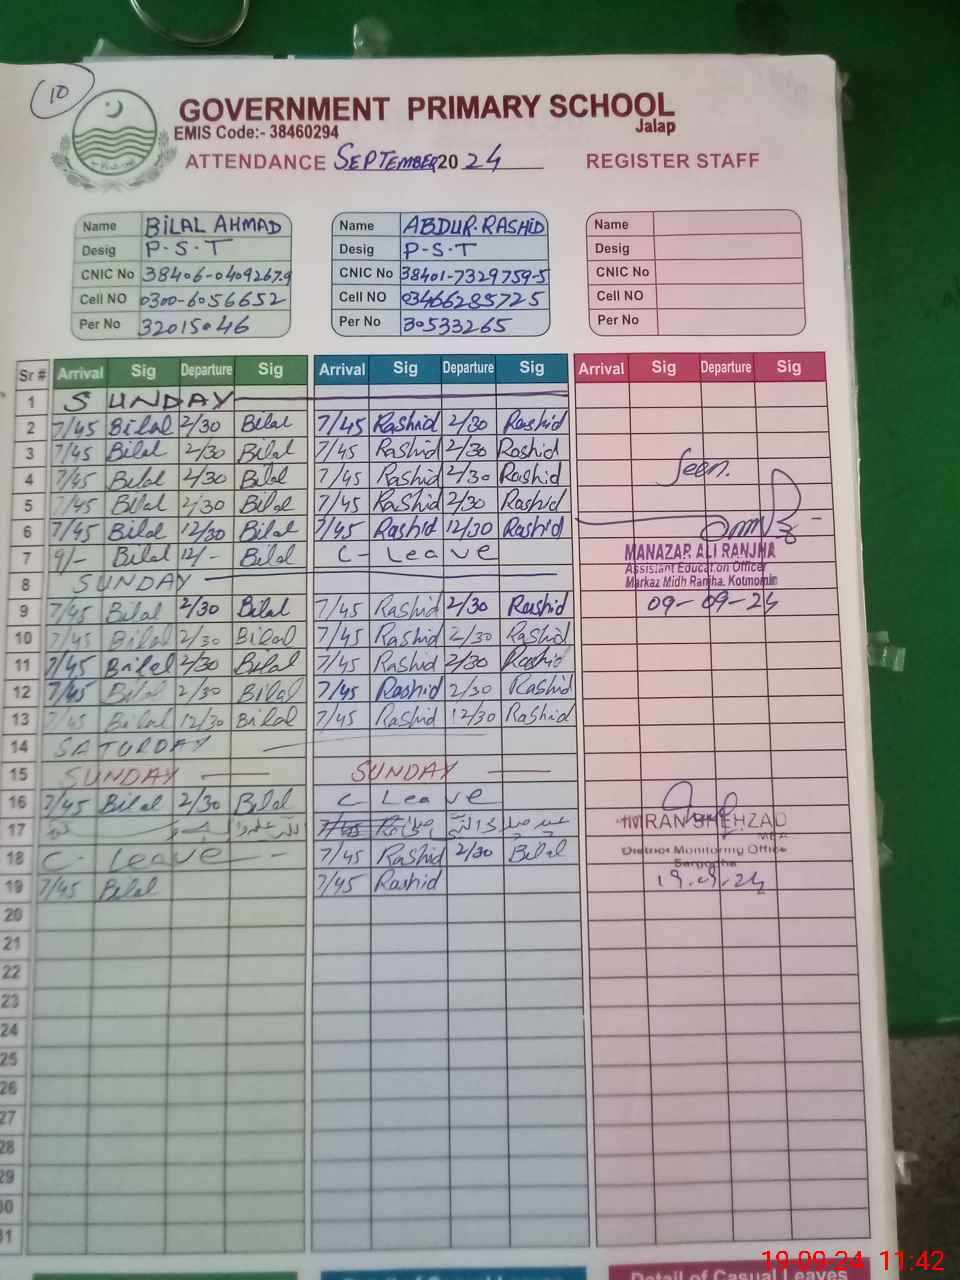 10
GOVERNMENT PRIMARY SCHOOL
EMIS Code:- 38460294 Jalap
ATTENDANCE SEPTEMBER 2024 REGISTER STAFF
Name BILAL AHMAD Name ABDUR.RASHID Name
Desig P.S.T Desig P.S.T Desig
CNIC No 38406-0409267-9 CNIC No 38401-7329759-5 CNIC No
Cell NO 0300-6056652 Cell NO 03466285725 Cell NO
Per No 32015046 Per No 30533265 Per No
Sr # Arrival Sig Departure Sig Arrival Sig Departure Sig Arrival Sig Departure Sig
1 SUNDAY
2 7/45 Bilal 2/30 Bilal 7/45 Rashid 2/30 Rashid
3 7/45 Bilal 2/30 Bilal 7/45 Rashid 2/30 Rashid
4 7/45 Bilal 2/30 Bilal 7/45 Rashid 2/30 Rashid Seen.
5 7/45 Bilal 2/30 Bilal 7/45 Rashid 2/30 Rashid
6 7/45 Bilal 12/30 Bilal 7/45 Rashid 12/30 Rashid
7 9/- Bilal 12/- Bilal C-Leave MANAZAR ALI RANJHA
Assistant Education Officer
8 SUNDAY Markaz Midh Ranjha. Kotmomin
9 7/45 Bilal 2/30 Bilal 7/45 Rashid 2/30 Rashid 09-09-24
10 7/45 Bilal 2/30 Bilal 7/45 Rashid 2/30 Rashid
11 7/45 Bilal 2/30 Bilal 7/45 Rashid 2/30 Rashid
12 7/45 Bilal 2/30 Bilal 7/45 Rashid 2/30 Rashid
13 7/45 Bilal 12/30 Bilal 7/45 Rashid 12/30 Rashid
14 SATURDAY
15 SUNDAY SUNDAY
16 7/45 Bilal 2/30 Bilal C Leave
17 7/45 IMRAN SHEHZAD
MEA
18 C-Leave - 7/45 Rashid 2/30 Bilal District Monitoring Office
Sargodha
19 7/45 Bilal 7/45 Rashid 19.09.24
20
21
22
23
24
25
26
27
28
29
30
31
Detail of Casual Leaves
19-09-24 11:42